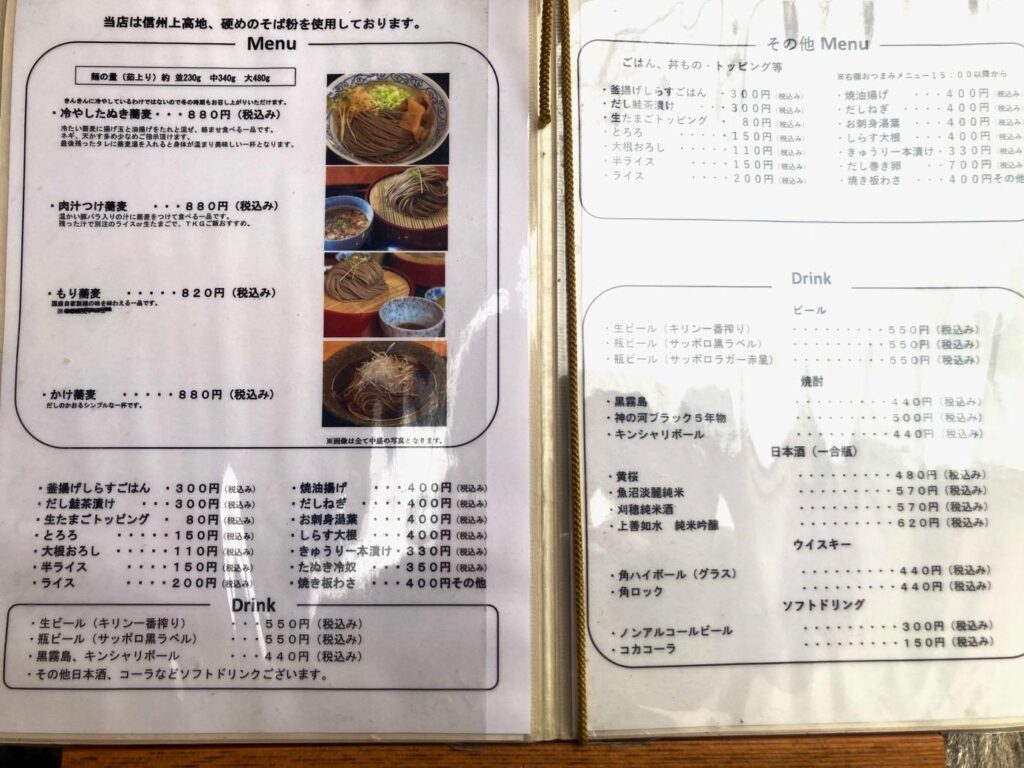 当店は信州上高地、硬めのそば粉を使用しております。
Menu
麺の量（茹上り）約 並230g 中340g 大480g
きんきんに冷やしているわけではないので冬の時期もお召し上がりいただけます。
・冷やしたぬき蕎麦・・・880円（税込み）
冷たい蕎麦に揚げ玉と油揚げをたれと混ぜ、絡ませ食べる一品です。
ネギ、天かす多め少なめご指示頂けます。
最後残ったタレに蕎麦湯を入れると身体が温まり美味しい一杯となります。
・肉汁つけ蕎麦 ・・・880円（税込み）
温かい豚バラ入りの汁に蕎麦をつけて食べる一品です。
残った汁で別注のライスor生たまごで、TKGご飯おすすめ。
・もり蕎麦 ・・・・・820円（税込み）
国産自家製麺の味を味わえる一品です。
・かけ蕎麦 ・・・・・880円（税込み）
だしのかおるシンプルな一杯です。
※画像は全て中盛の写真となります。
・釜揚げしらすごはん ・300円（税込み）
・だし鮭茶漬け ・・・300円（税込み）
・生たまごトッピング ・ 80円（税込み）
・とろろ ・・・・・150円（税込み）
・大根おろし ・・・・・110円（税込み）
・半ライス ・・・・150円（税込み）
・ライス ・・・・200円（税込み）
・焼油揚げ ・・・400円（税込み）
・だしねぎ ・・・400円（税込み）
・お刺身湯葉 ・・・400円（税込み）
・しらす大根 ・・・400円（税込み）
・きゅうり一本漬け・330円（税込み）
・たぬき冷奴 ・・・350円（税込み）
・焼き板わさ ・・・400円その他
Drink
・生ビール（キリン一番搾り） ・・・550円（税込み）
・瓶ビール（サッポロ黒ラベル） ・・・550円（税込み）
・黒霧島、キンシャリボール ・・・440円（税込み）
・その他日本酒、コーラなどソフトドリンクございます。
その他 Menu
ごはん、丼もの・トッピング等
※右欄おつまみメニュー15：00以降から
・釜揚げしらすごはん 300円（税込み）
・だし鮭茶漬け ・・・・300円（税込み）
・生たまごトッピング 80円（税込み）
・とろろ ・・・・150円（税込み）
・大根おろし ・・・・110円（税込み）
・半ライス ・・・・150円（税込み）
・ライス ・・・・200円（税込み）
・焼油揚げ ・・・・400円（税込み）
・だしねぎ ・・・・400円（税込み）
・お刺身湯葉 ・・・・400円（税込み）
・しらす大根 ・・・・400円（税込み）
・きゅうり一本漬け・330円（税込み）
・だし巻き卵 ・・・700円（税込み）
・焼き板わさ ・・・・400円その他
Drink
ビール
・生ビール（キリン一番搾り） ・・・・・・・・550円（税込み）
・瓶ビール（サッポロ黒ラベル） ・・・・・・・・550円（税込み）
・瓶ビール（サッポロラガー赤星） ・・・・・・・・550円（税込み）
焼酎
・黒霧島 ・・・・・・・・440円（税込み）
・神の河ブラック5年物 ・・・・・・・・500円（税込み）
・キンシャリボール ・・・・・・・・440円（税込み）
日本酒（一合瓶）
・黄桜 ・・・・・・・・480円（税込み）
・魚沼淡麗純米 ・・・・・・・・570円（税込み）
・刈穂純米酒 ・・・・・・・・570円（税込み）
・上善如水 純米吟醸 ・・・・・・・・620円（税込み）
ウイスキー
・角ハイボール（グラス） ・・・・・・・・440円（税込み）
・角ロック ・・・・・・・・440円（税込み）
ソフトドリンク
・ノンアルコールビール ・・・・・・・・300円（税込み）
・コカコーラ ・・・・・・・・150円（税込み）